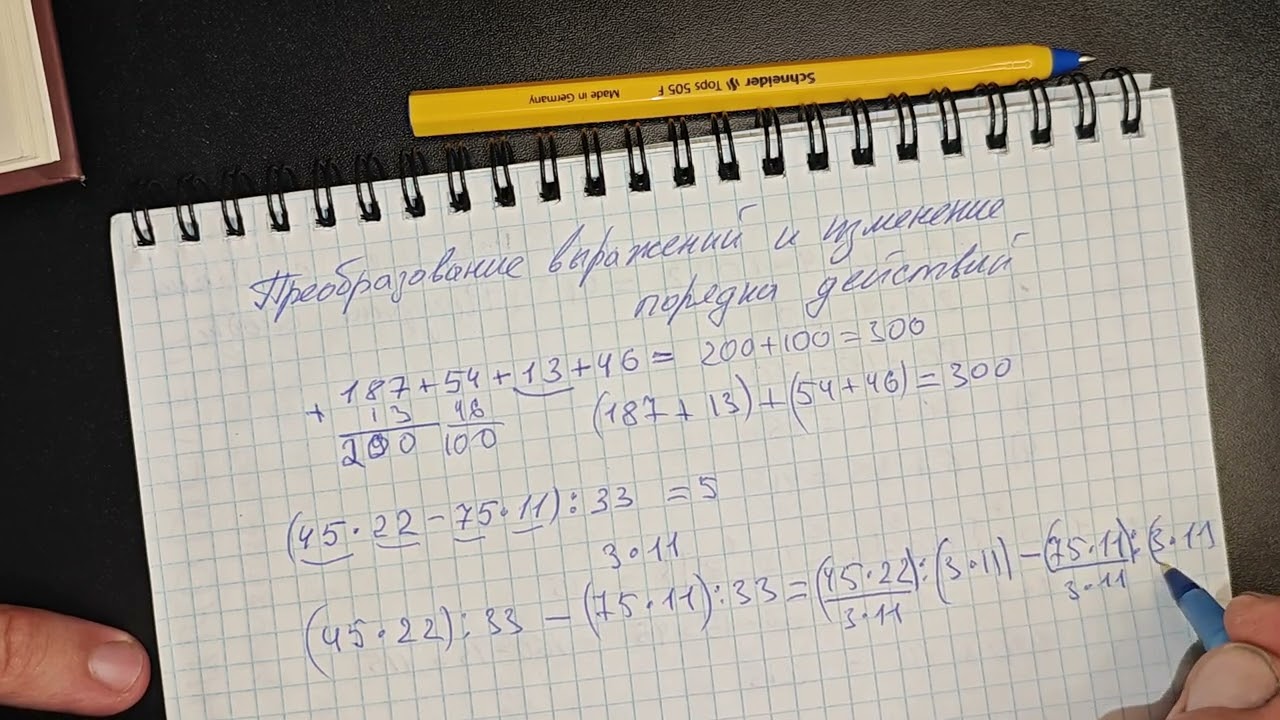 Schneider Tops 505 F Made in Germany
Преобразование выражений и изменение
порядка действий
187+54+13+46= 200+100=300
+ 13 46 (187+13)+(54+46)=300
200 100
(45·22-75·11):33 =5
3·11
(45·22):33-(75·11):33=(45·22):(3·11)-(75·11):(3·11)
3·11 3·11